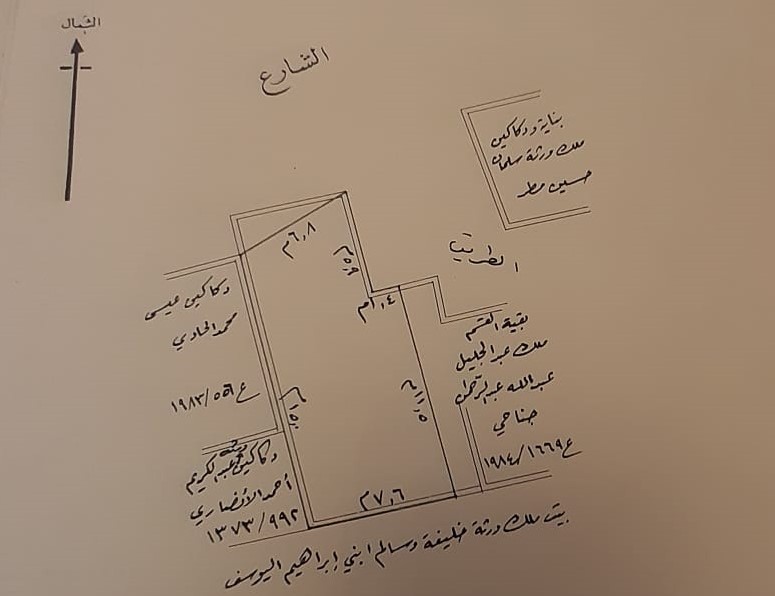 الشمال
الشارع
بناية ودكاكين
ملك ورثة سلمان
حسين مطر
الطريق
٦,٨م
٥,٩م
١,٤م
دكاكين عيسى
محمد الحادي
ع ٥٥٦/١٩٨٣
بقية القسم
ملك عبدالجليل
عبدالله عبدالرحمن
جناحي
ع ١٦٦٩/١٩٨٤
١١,٥م
١٥,٠م
دكاكين عبدالكريم
أحمد الأنصاري
١٣٧٣/٩٩٢
٧,٦م
بيت ملك ورثة خليفة وسالم ابني إبراهيم اليوسف